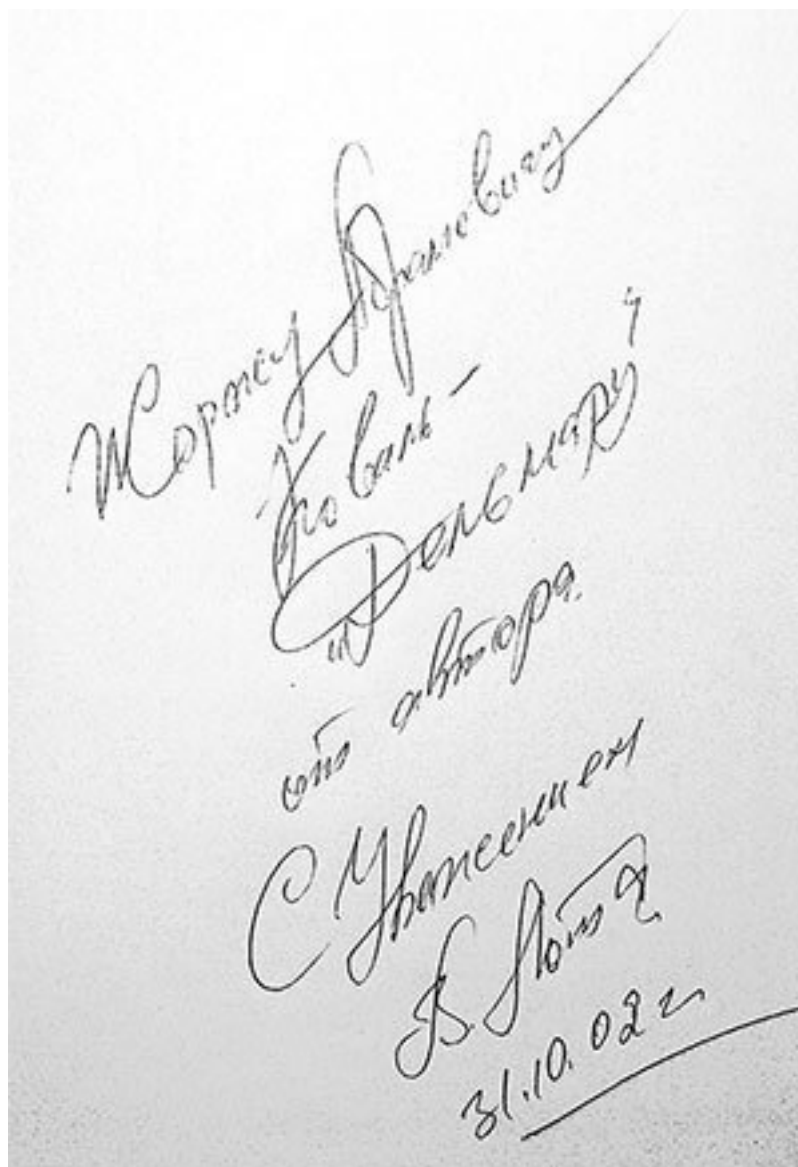 Жоржу Абрамовичу
Коваль-
"Дельмару"
от автора
С Уважением
В. Лота
31.10.02 г.